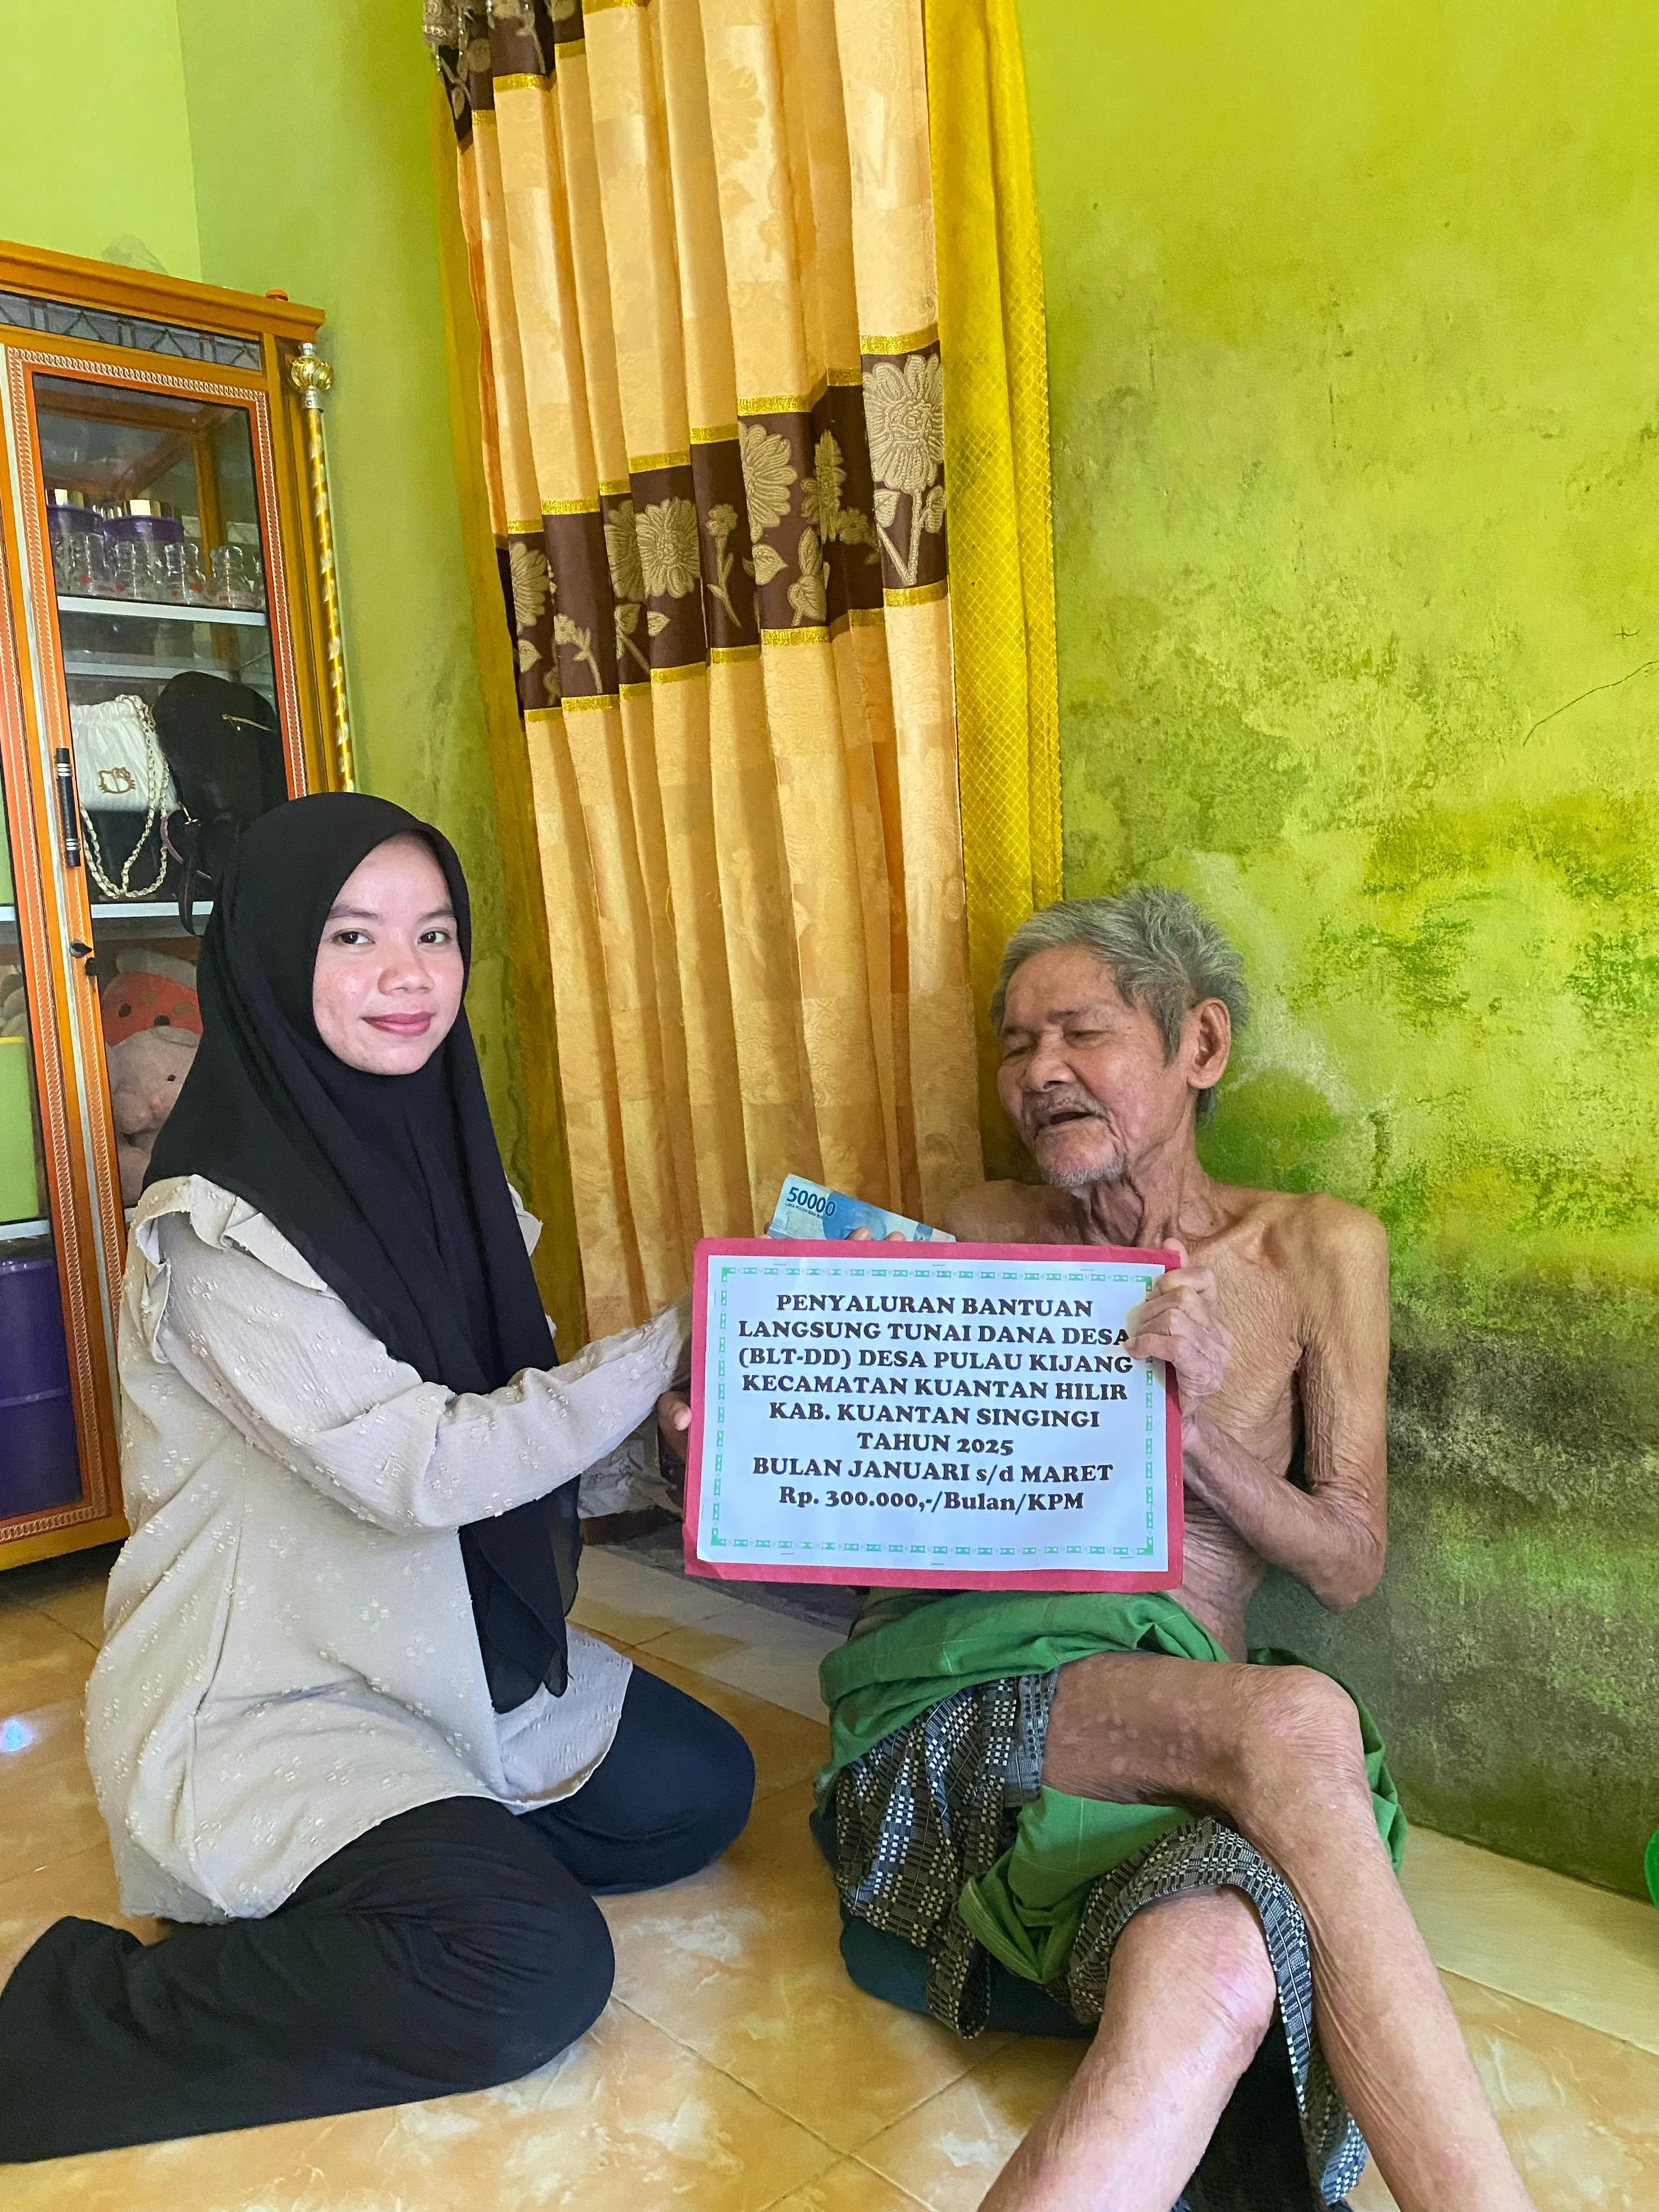 50000
PENYALURAN BANTUAN
LANGSUNG TUNAI DANA DESA
(BLT-DD) DESA PULAU KIJANG
KECAMATAN KUANTAN HILIR
KAB. KUANTAN SINGINGI
TAHUN 2025
BULAN JANUARI s/d MARET
Rp. 300.000,-/Bulan/KPM